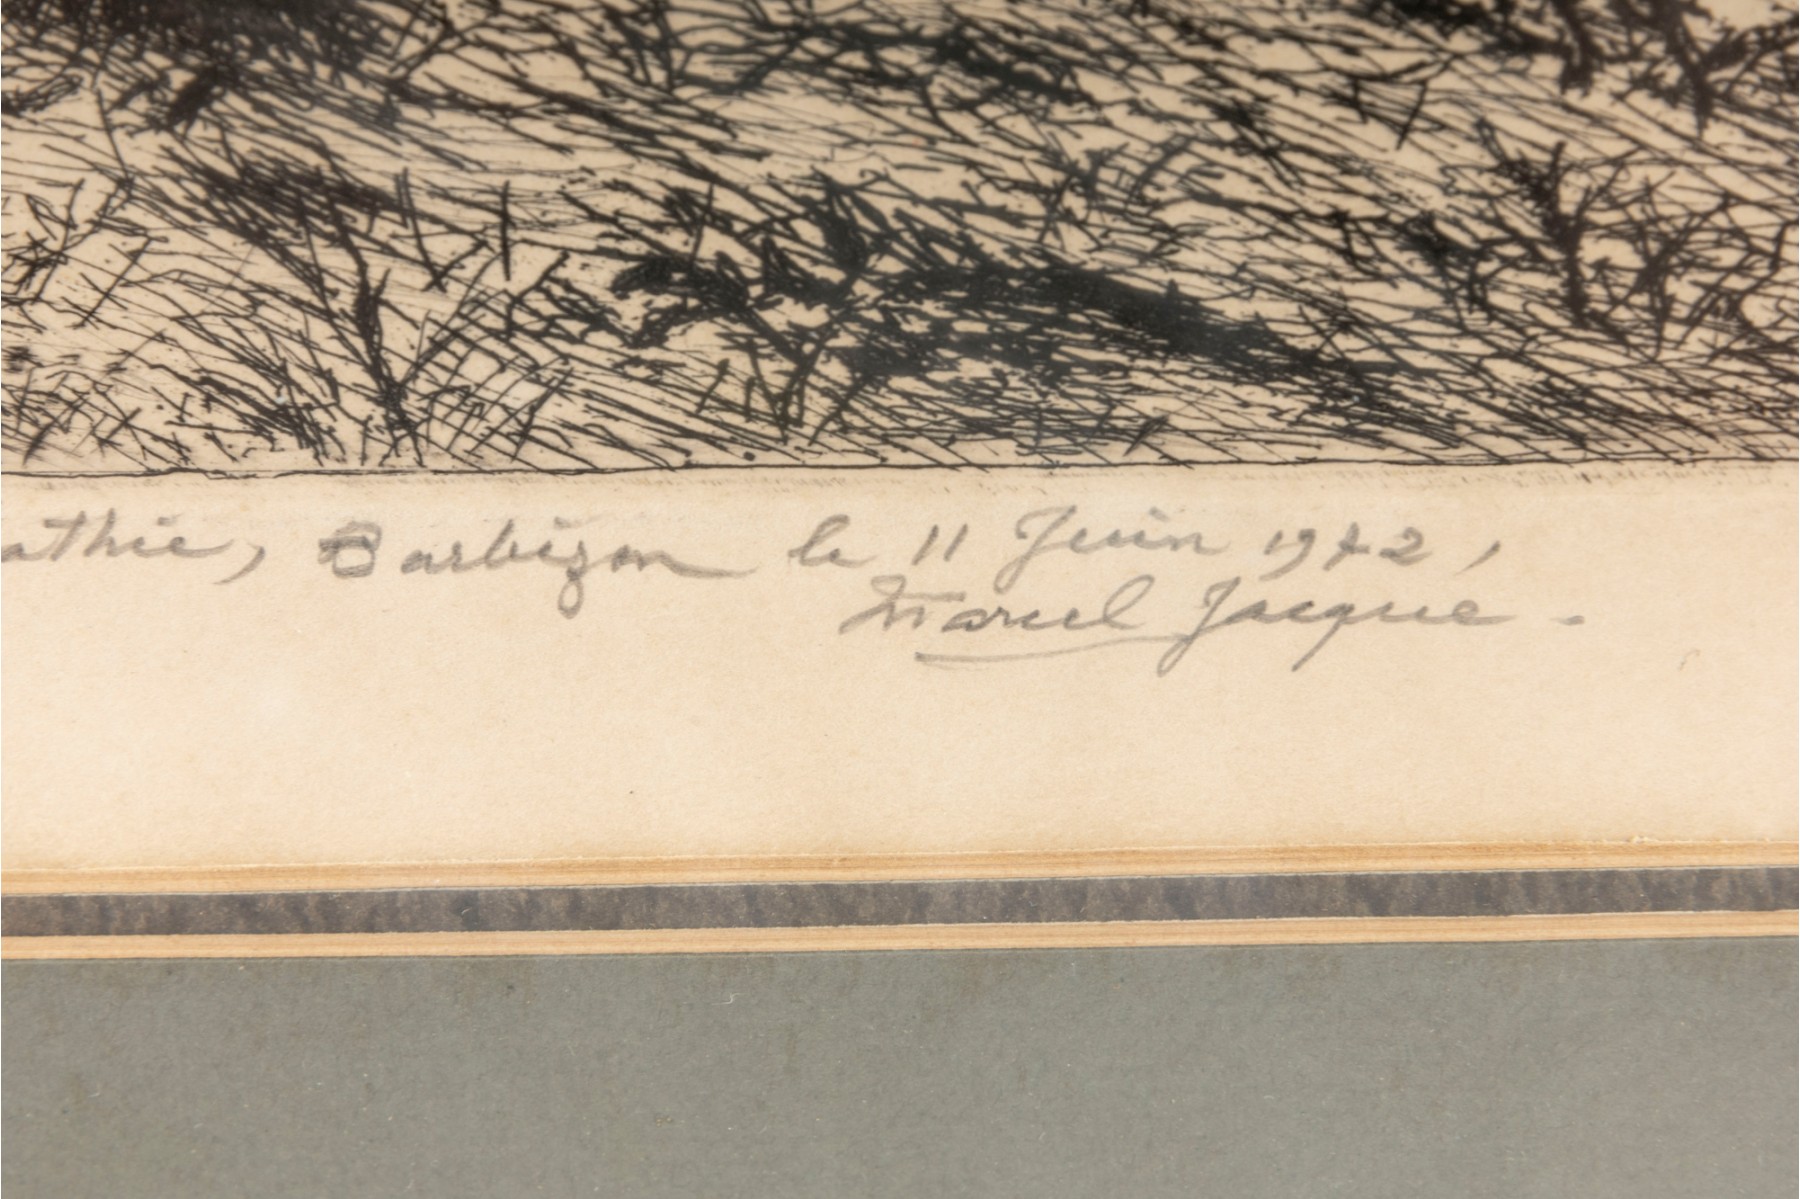 athie, Barbizon le 11 Juin 1942,
Marcel Jacque.